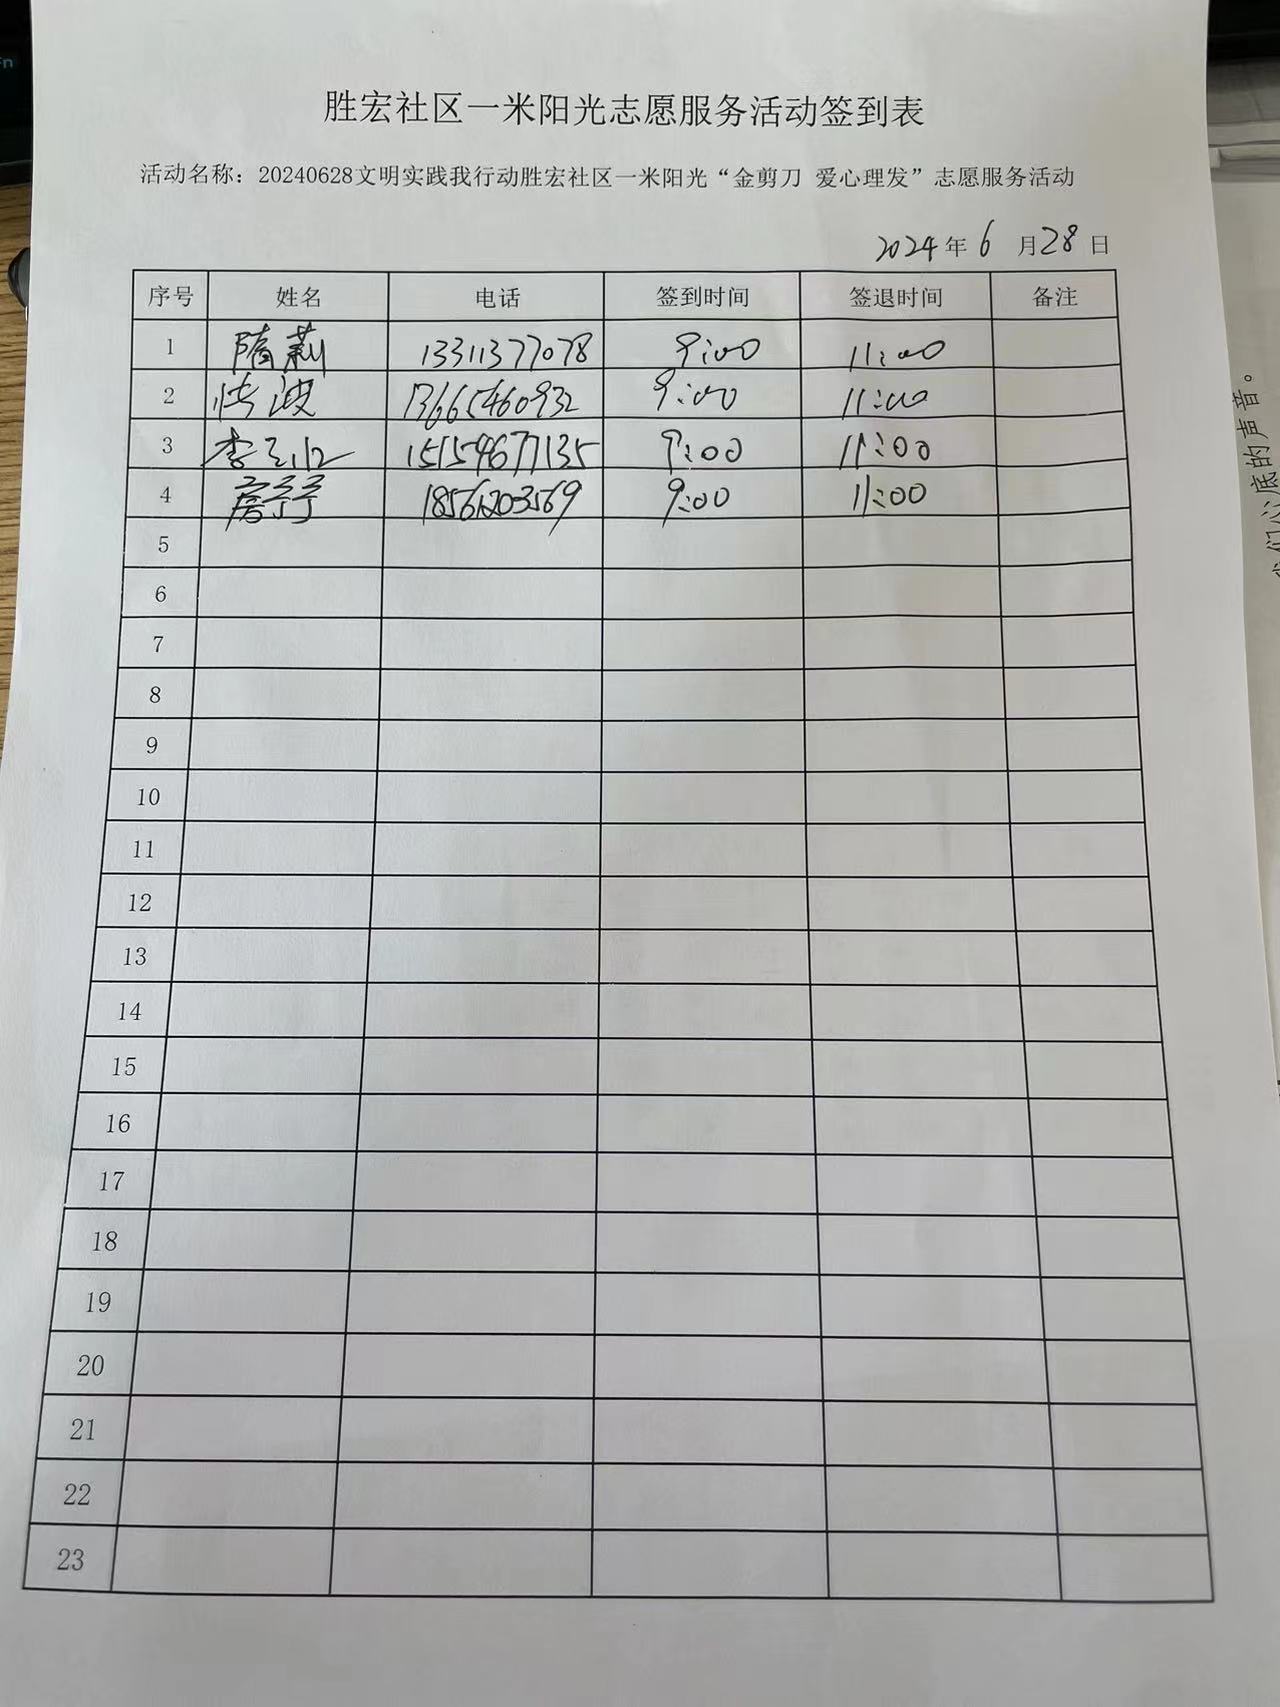 胜宏社区一米阳光志愿服务活动签到表
活动名称：20240628文明实践我行动胜宏社区一米阳光“金剪刀 爱心理发”志愿服务活动
2024年6月28日
序号 姓名 电话 签到时间 签退时间 备注
1 隋莉 13311377078 9:00 11:00
2 波 13665460932 9:00 11:00
3 李 15154677135 9:00 11:00
4 房 18561203569 9:00 11:00
5
6
7
8
9
10
11
12
13
14
15
16
17
18
19
20
21
22
23
心底的声音。